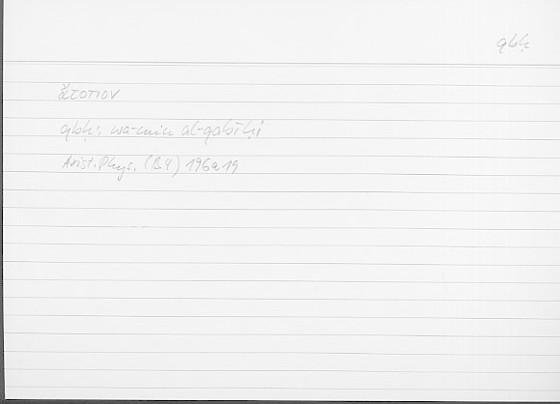 qbḥ
ἄτοπον
qbḥ; wa-min al-qabīḥi
Arist. Phys. (B4) 196a19